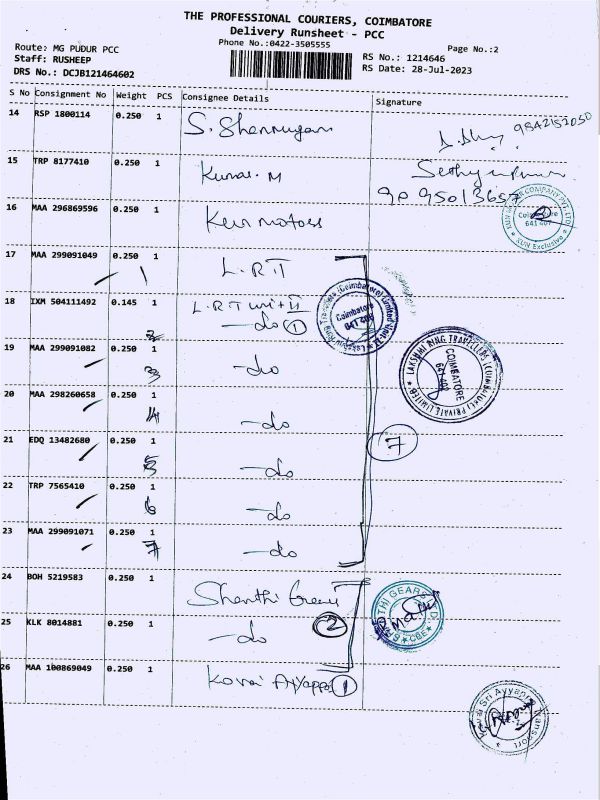 THE PROFESSIONAL COURIERS, COIMBATORE
Delivery Runsheet - PCC
Phone No.:0422-3505555
Page No.:2
Route: MG PUDUR PCC
Staff: RUSHEEP
DRS No.: DCJB121464602
RS No.: 1214646
RS Date: 28-Jul-2023
S No Consignment No Weight PCS Consignee Details Signature
14 RSP 1800114 0.250 1 S. Shanmugam 9842152050
15 TRP 8177410 0.250 1 Kumar. M
9095013657
16 MAA 296869596 0.250 1 Kun motors
Coimbatore
641 407
KUN Exclusive
17 MAA 299091049 0.250 1 L.R.T
18 IXM 504111492 0.145 1 L.R.T unit II
2 -do 1
Coimbatore
641 402
19 MAA 299091082 0.250 1
3 -do
LAKSHMI RING TRAVELLERS (COIMBATORE) PRIVATE LIMITED
COIMBATORE
641 402
20 MAA 298260658 0.250 1
4 -do
21 EDQ 13482680 0.250 1 7
5 -do
22 TRP 7565410 0.250 1
6 -do
23 MAA 299091071 0.250 1
7 -do
24 BOH 5219583 0.250 1 Shanthi Gears
SHANTHI GEARS LTD.
CBE
25 KLK 8014881 0.250 1 -do 2
26 MAA 100869049 0.250 1 Kovai Ayyappa 1
Kovai Sri Ayyappa Transport